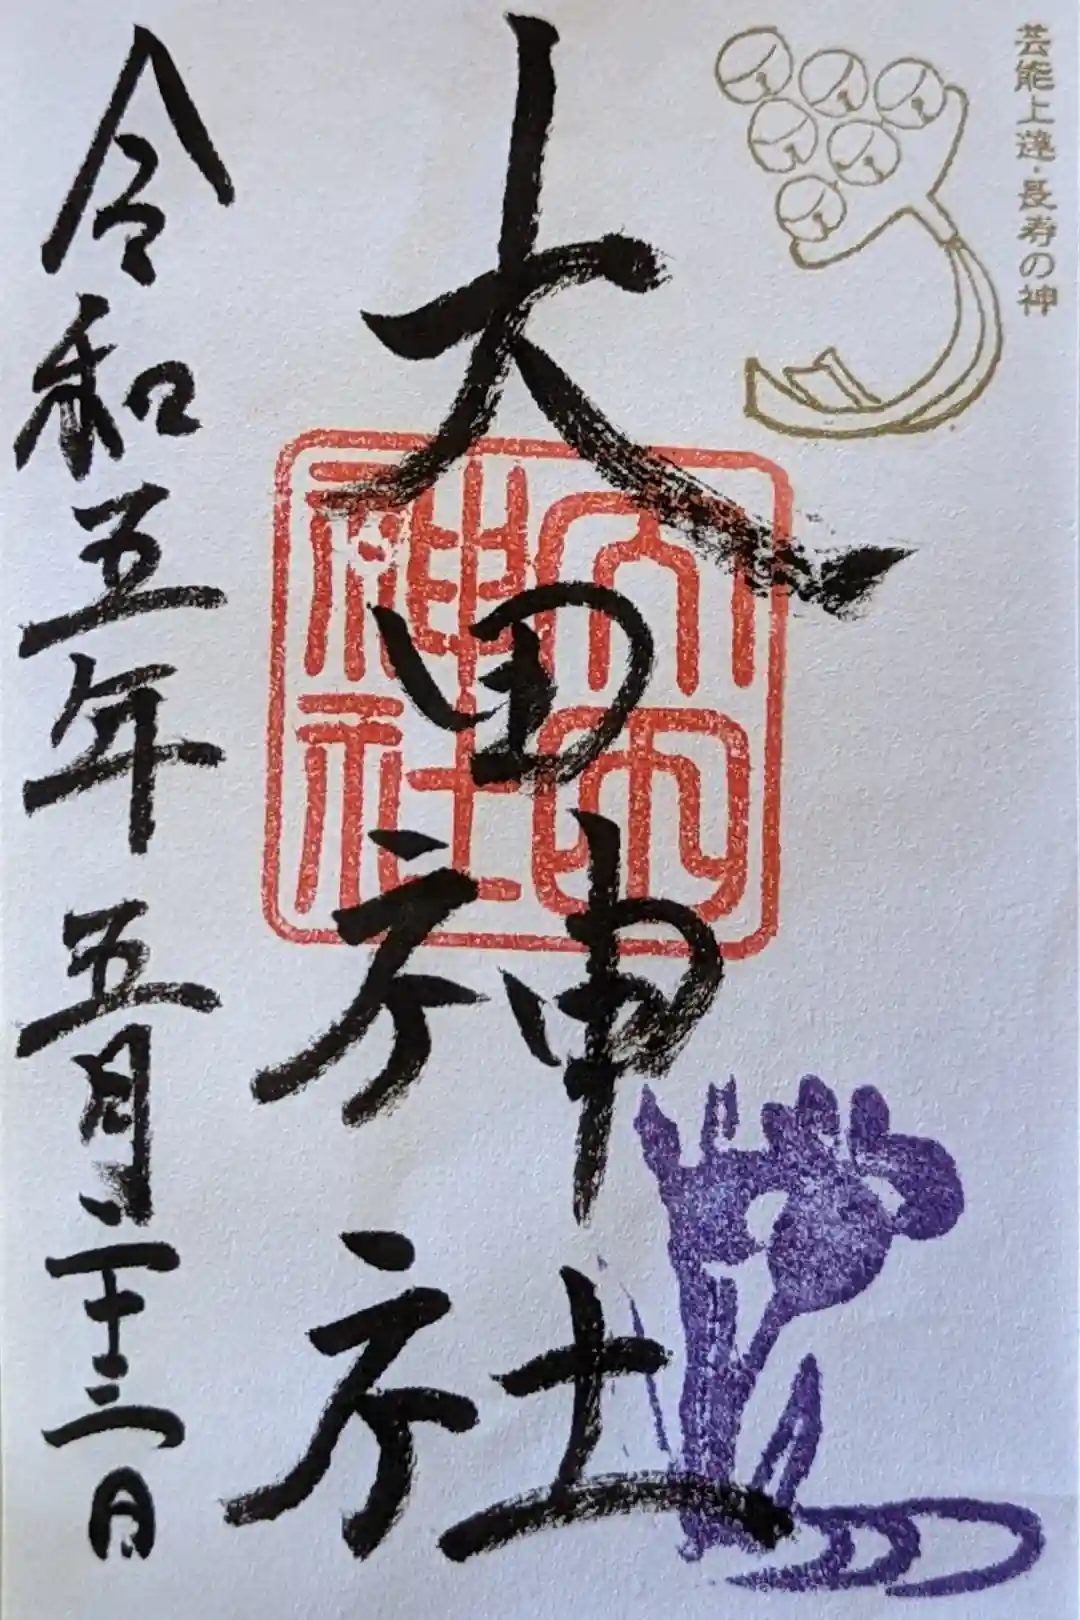 芸能上達・長寿の神
大田神社
大田神社
令和五年五月二十三日